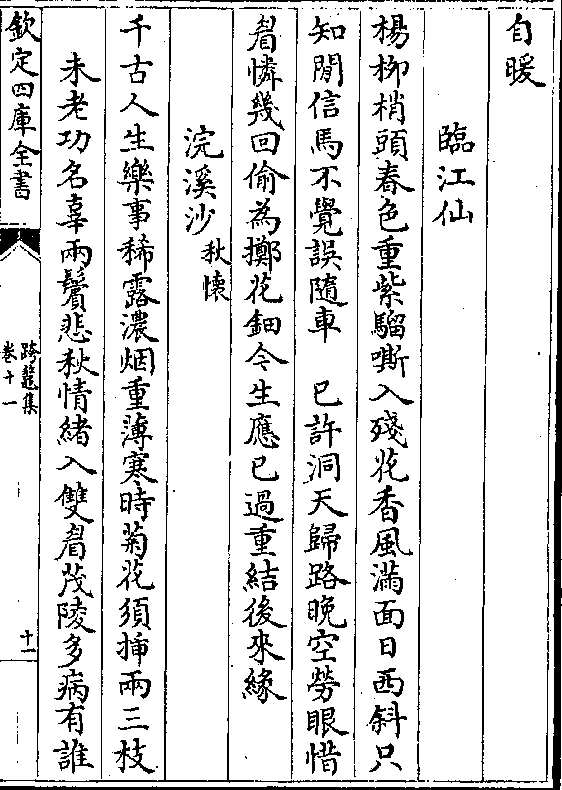 自暖
臨江仙
楊柳梢頭春色重紫騮嘶入殘花香風滿面日西斜只
知閒信馬不覺誤隨車　已許洞天歸路晚空勞眼惜
眉憐幾回偷為擲花鈿今生應已過重結後來緣
浣溪沙秋懷
千古人生樂事稀露濃烟重薄寒時菊花須揷兩三枝
未老功名辜兩鬢悲秋情緒入雙眉茂陵多病有誰
欽定四庫全書
跨鼇集
卷十一
十一